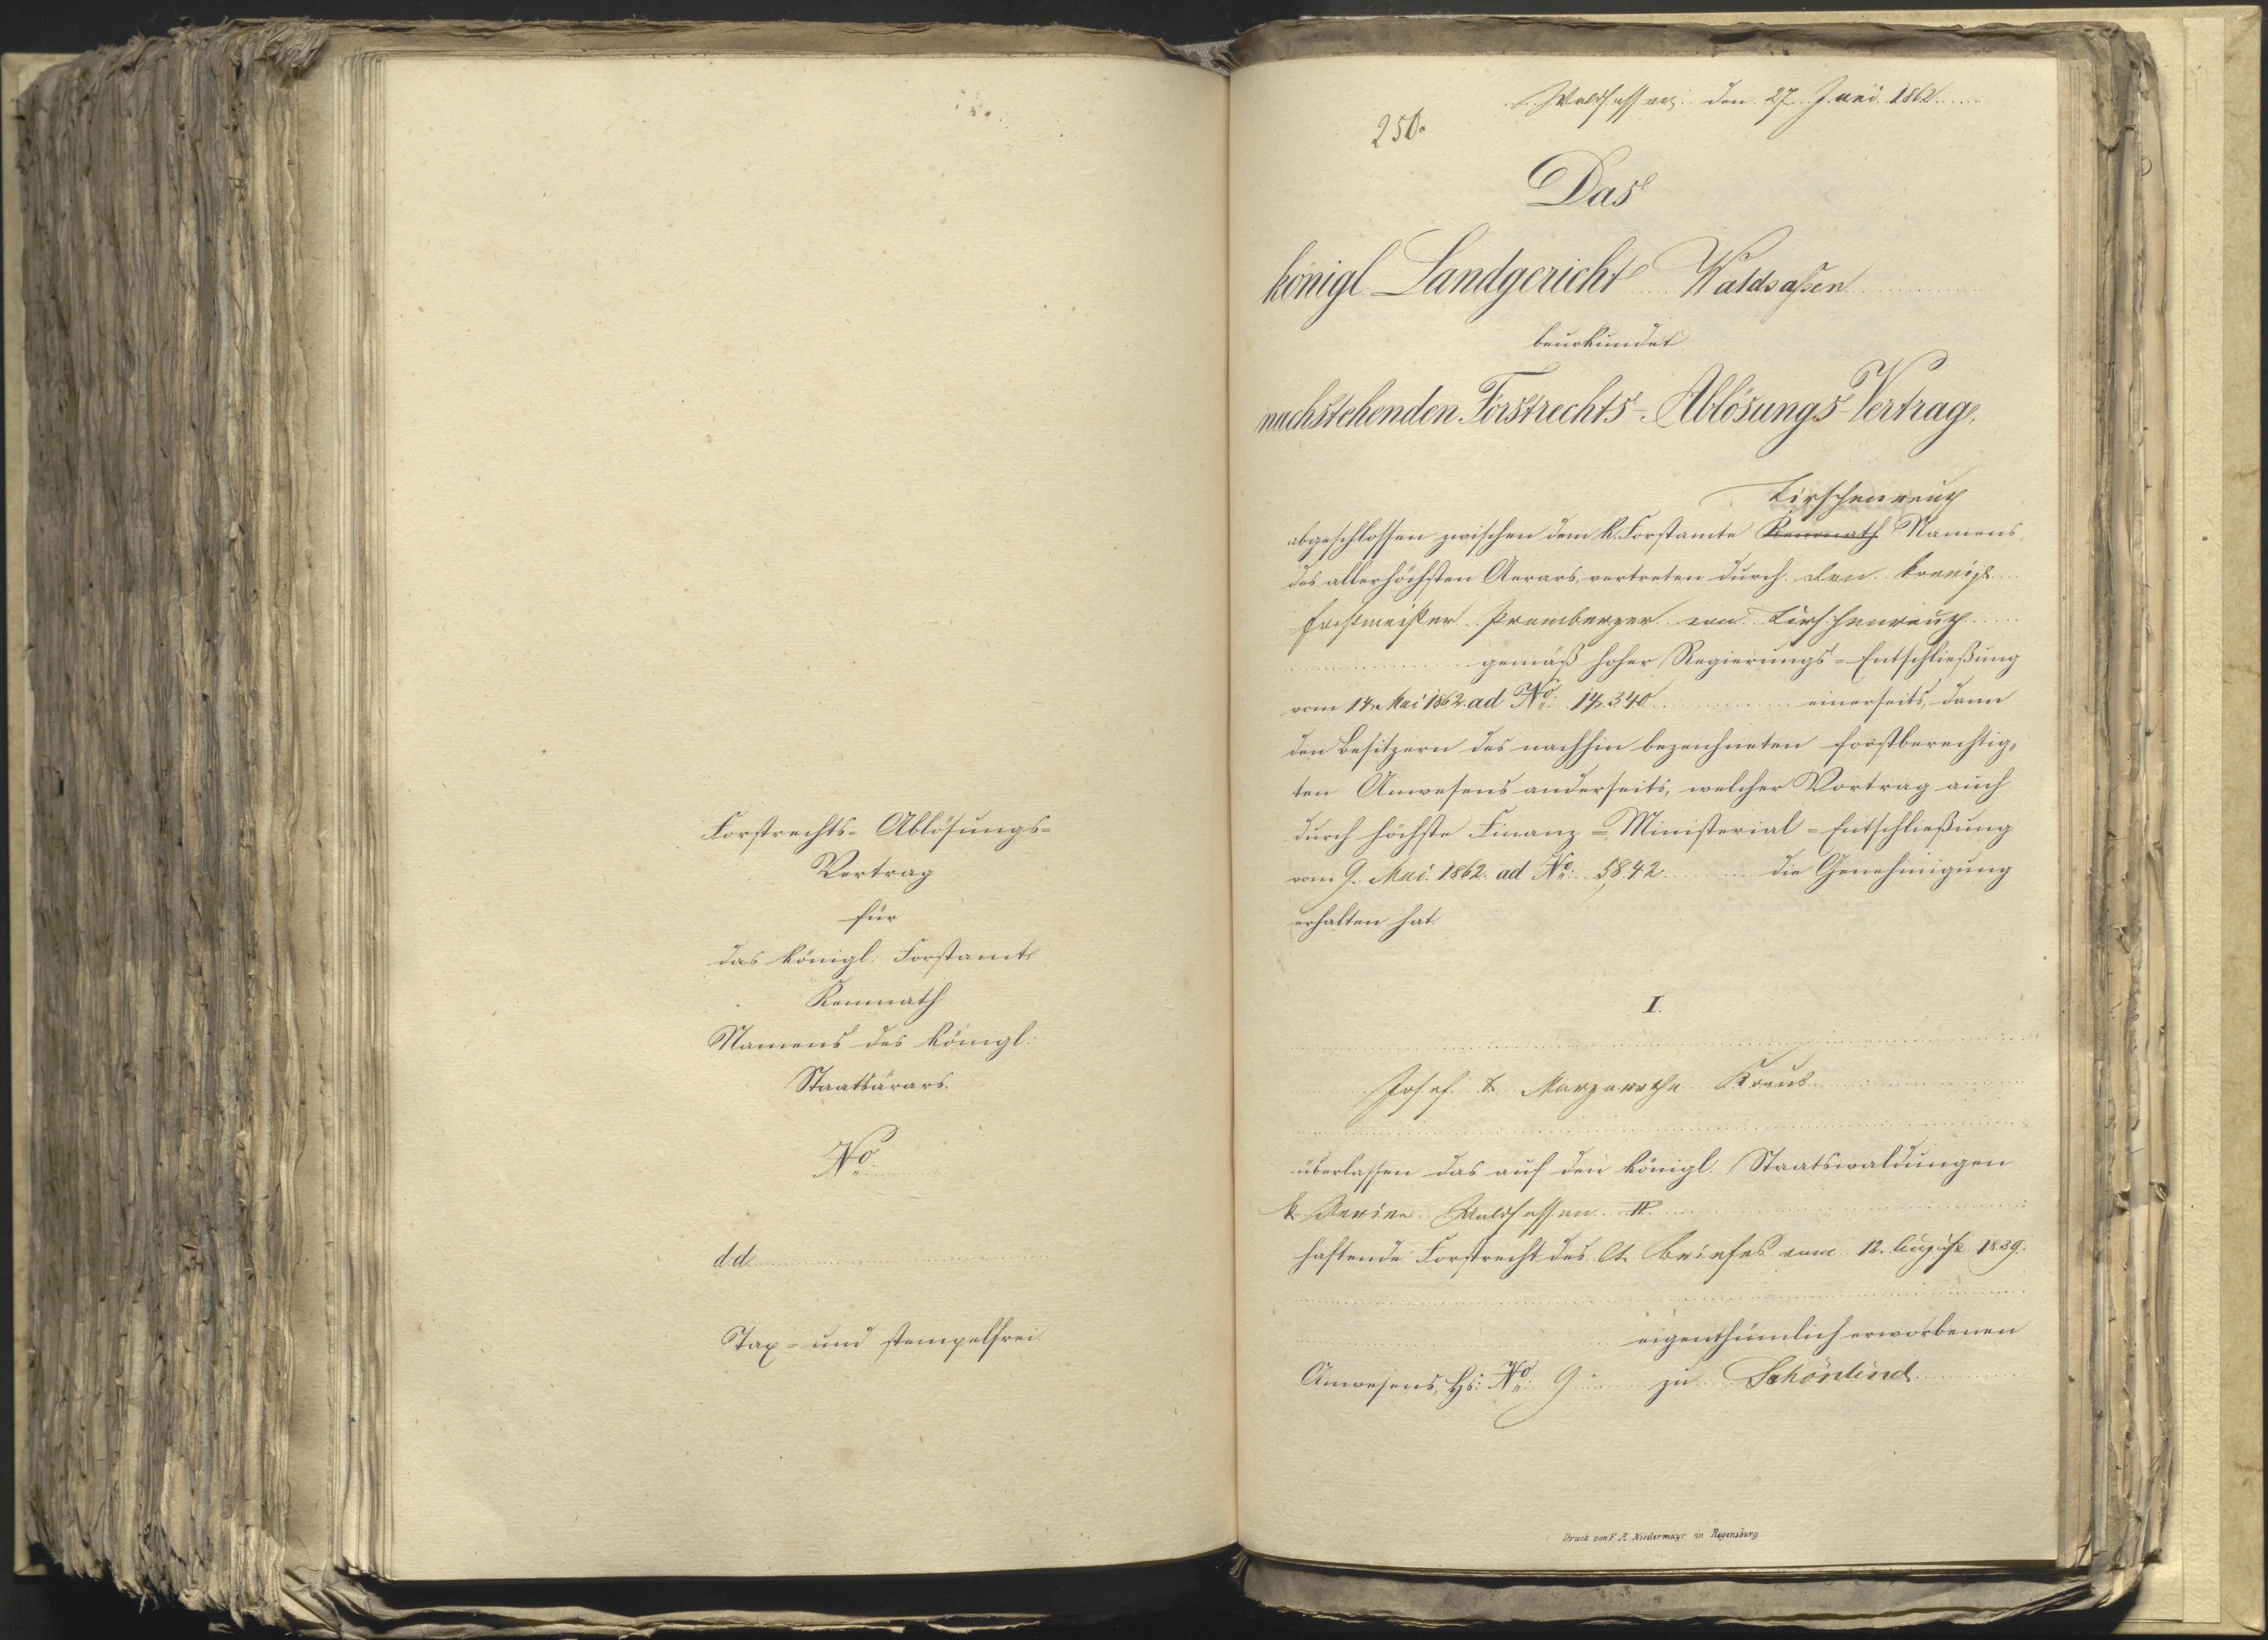 Forstrechts- Ablösungs-
Vertrag
für
das königl: Forstamt
Kemnath
Namens des königl:
Staatsärars.
No.
dd.
Tax- und stempelfrei
Waldsassen den 27. Juni 1862
250.
Das
königl. Landgericht Waldsaßen
beurkundet
nachstehenden Forstrechts-Ablösungs-Vertrag,
Tirschenreuth
abgeschlossen zwischen dem k. Forstamte Kemnath Namens
des allerhöchsten Aerars, vertreten durch den koenigl.
Forstmeister Premberger von Tirschenreuth
gemäß hoher Regierungs-Entschließung
vom 14. Mai 1862 ad No. 14,340 einerseits, dann
den Besitzern des nachhin bezeichneten forstberechtig„
ten Anwesens anderseits, welcher Vertrag auch
durch höchste Finanz-Ministerial-Entschließung
vom 9. Mai 1862 ad No. 5842 die Genehmigung
erhalten hat.
I.
Josef & Margarethe Kraus
überlassen das auf den königl. Staatswaldungen
k Revier Waldsassen II
haftende Forstrecht des lt. Briefes vom 12. August 1839.
eigenthümlich erworbenen
Anwesens, Hs: No. 9 zu Schönlind
Druck von F. A. Niedermayr in Regensburg